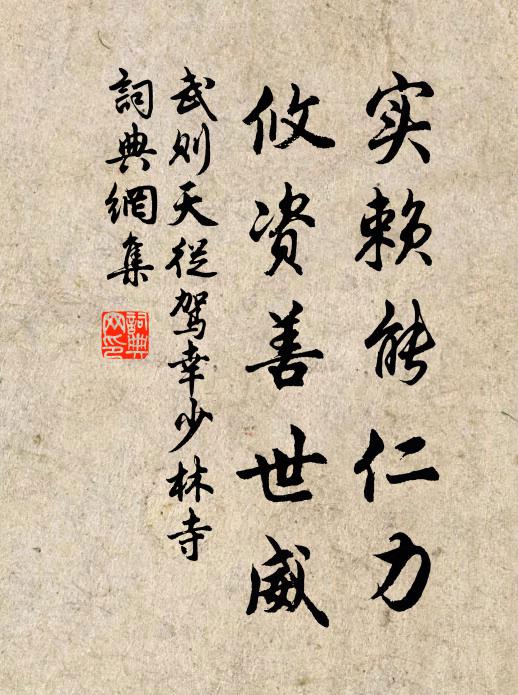 实赖能仁力
攸资善世威
武则天從驾幸少林寺
詞典網集
詞典
网印